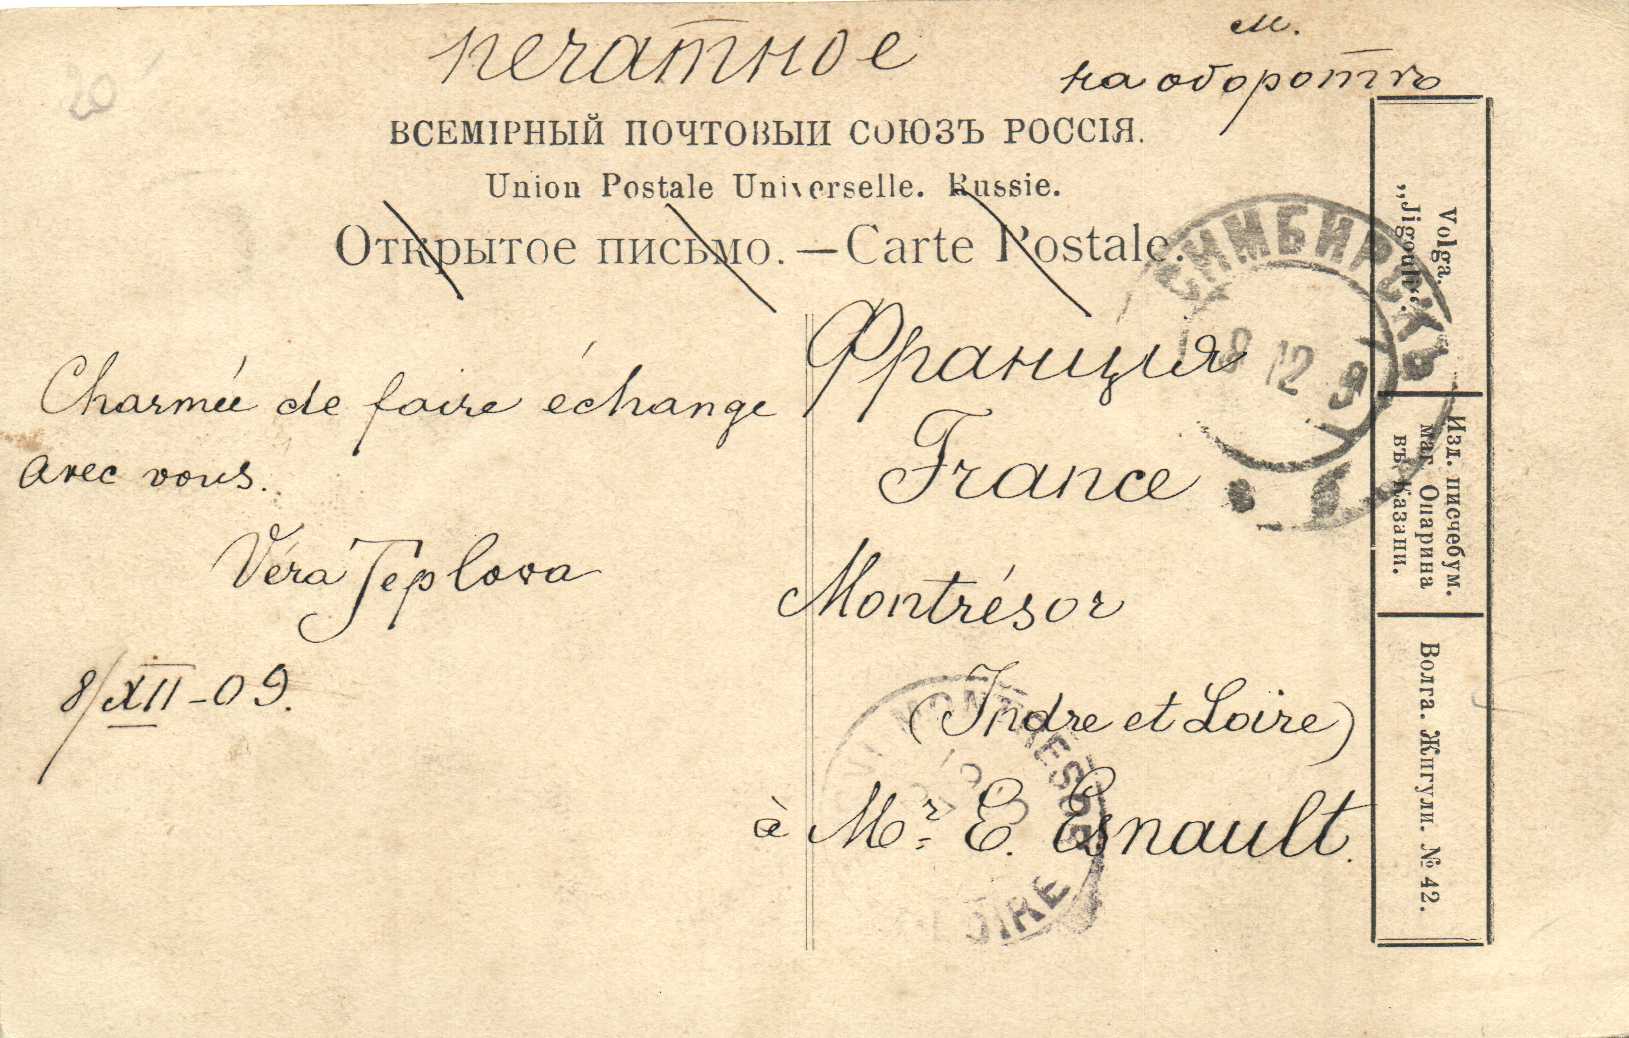 20
печатное
м.
на оборотѣ
ВСЕМІРНЫЙ ПОЧТОВЫЙ СОЮЗЪ РОССІЯ.
Union Postale Universelle. Russie.
Открытое письмо. — Carte Postale.
СИМБИРСКЪ
8 12 9
Charmée de faire échange
avec vous.
Véra Teplova
8/XII-09.
Франція
France
Montrésor
(Indre et Loire)
à Mr. E. Esnault.
MONTRESOR
LOIRE
Volga.
„Jigouli“.
Изд. писчебум.
маг. Опарина
въ Казани.
Волга. Жигули. № 42.